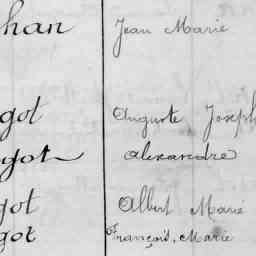 han Jean Marie
got Auguste Joseph
got alexandre
got Albert Marie
got François, Marie